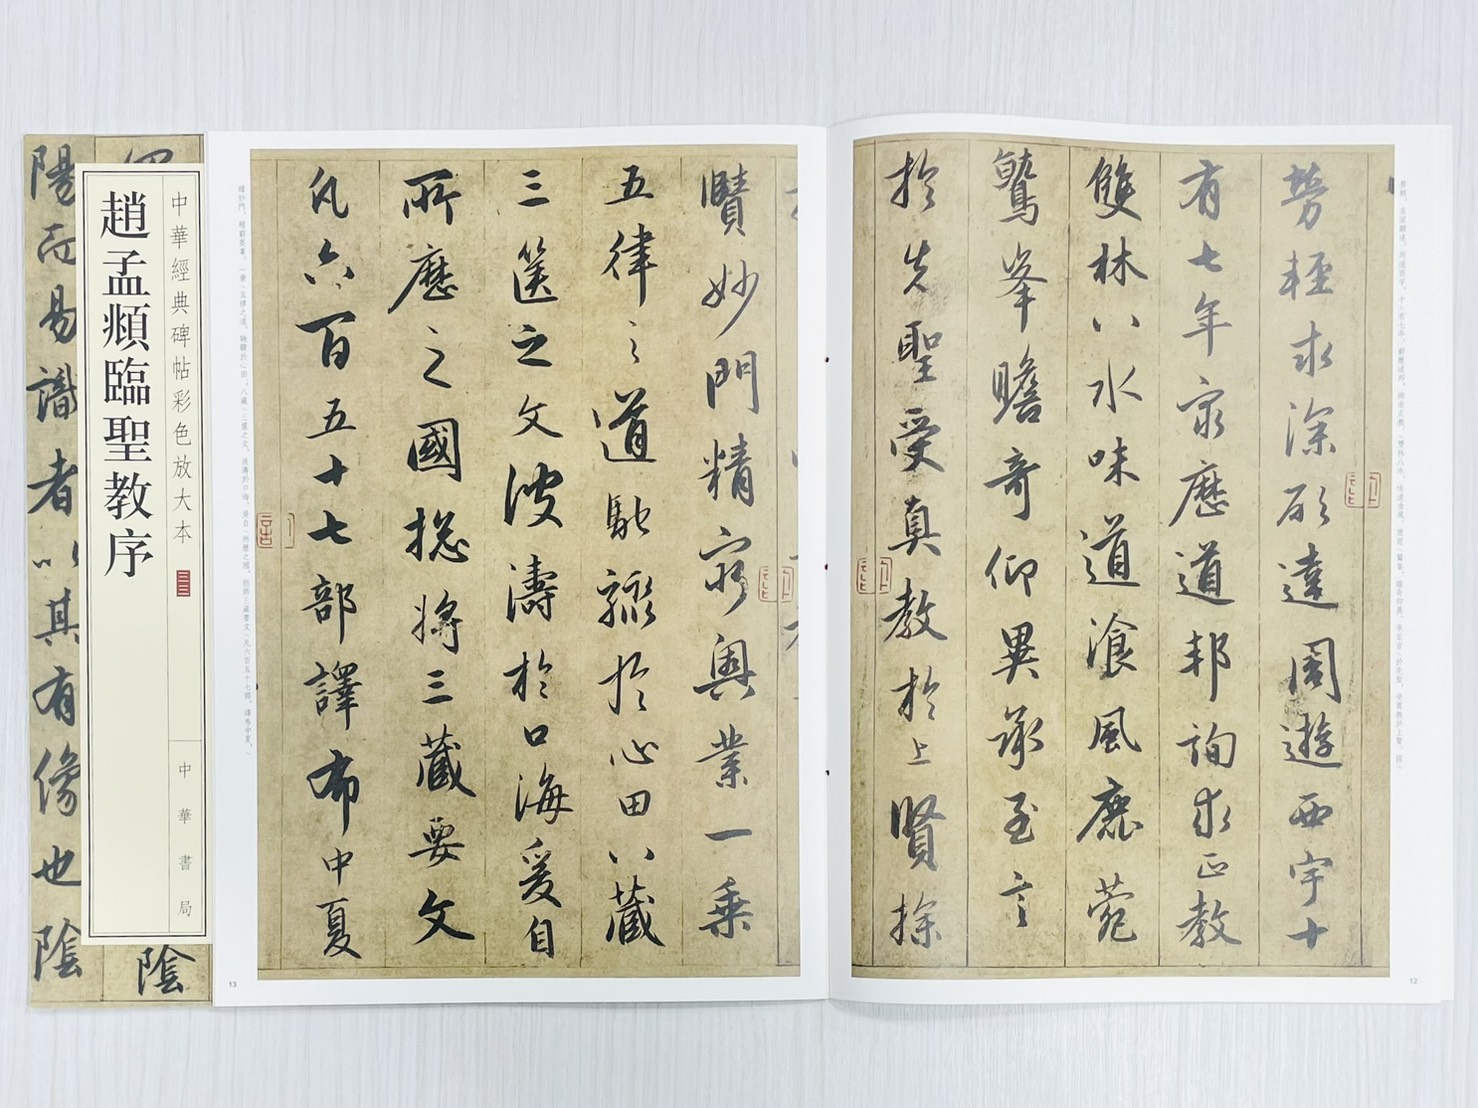 中華經典碑帖彩色放大本
趙孟頫臨聖教序
中華書局
陰
陽而易識者以其有像也陰
勞輕求深願達周遊西宇十
有七年窮歷道邦詢求正教
雙林八水味道飡風鹿菀
鷲峯瞻奇仰異承至言
於先聖受真教於上賢探
賾妙門精窮奧業一乘
五律之道馳驟於心田八藏
三篋之文波濤於口海爰自
所歷之國捴將三藏要文
凡六百五十七部譯布中夏
12
13